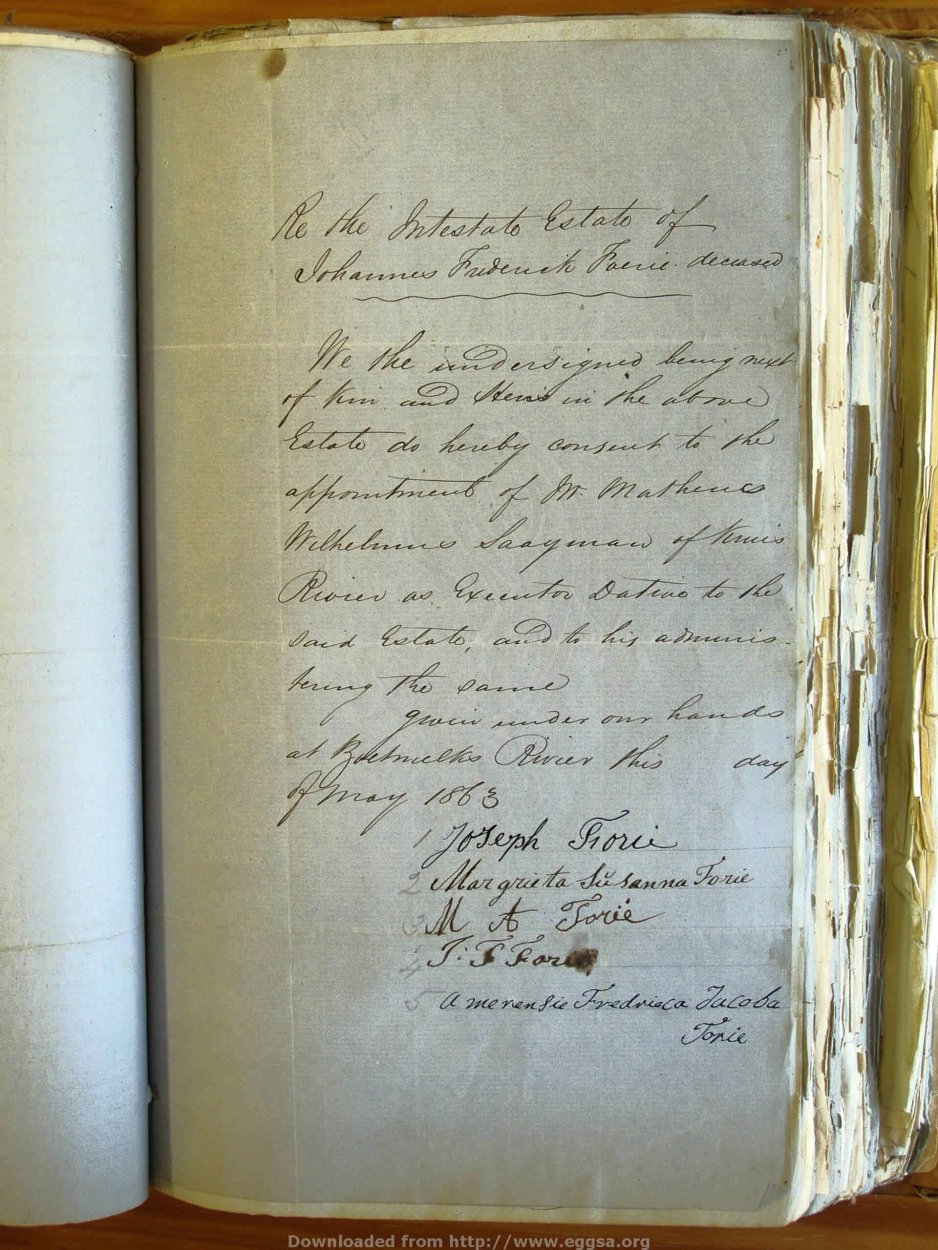 Re the Intestate Estate of
Johannes Frederick Foerie deceased
We the undersigned being next
of Kin and Heirs in the above
Estate do hereby consent to the
appointment of Mr. Matheus
Wilhelmus Saayman of Kruis
Rivier as Executor Dative to the
said Estate, and to his adminis-
tering the same
given under our hands
at Botmelks Rivier this day
of May 1863
1 Joseph Fiorie
2 Margrieta Susanna Forie
3 M A Forie
4 J: F Forie
5 Amerensie Fredrieca Jacoba
Forie
Downloaded from http://www.eggsa.org